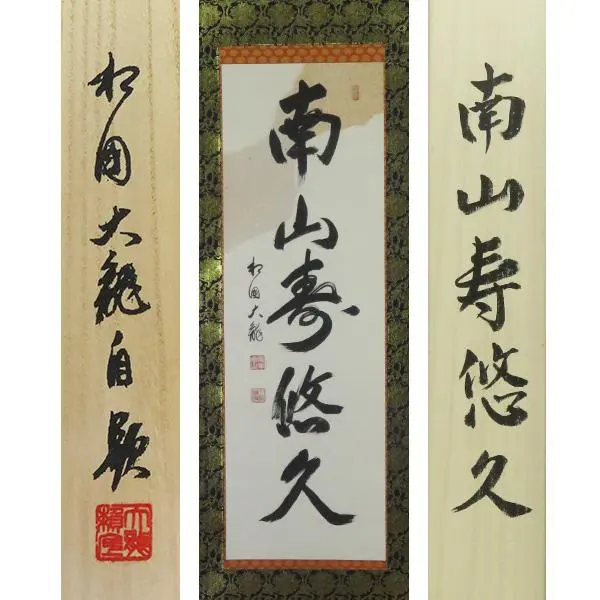 南山寿悠久
南山寿悠久
相国大龍
相国大龍自題